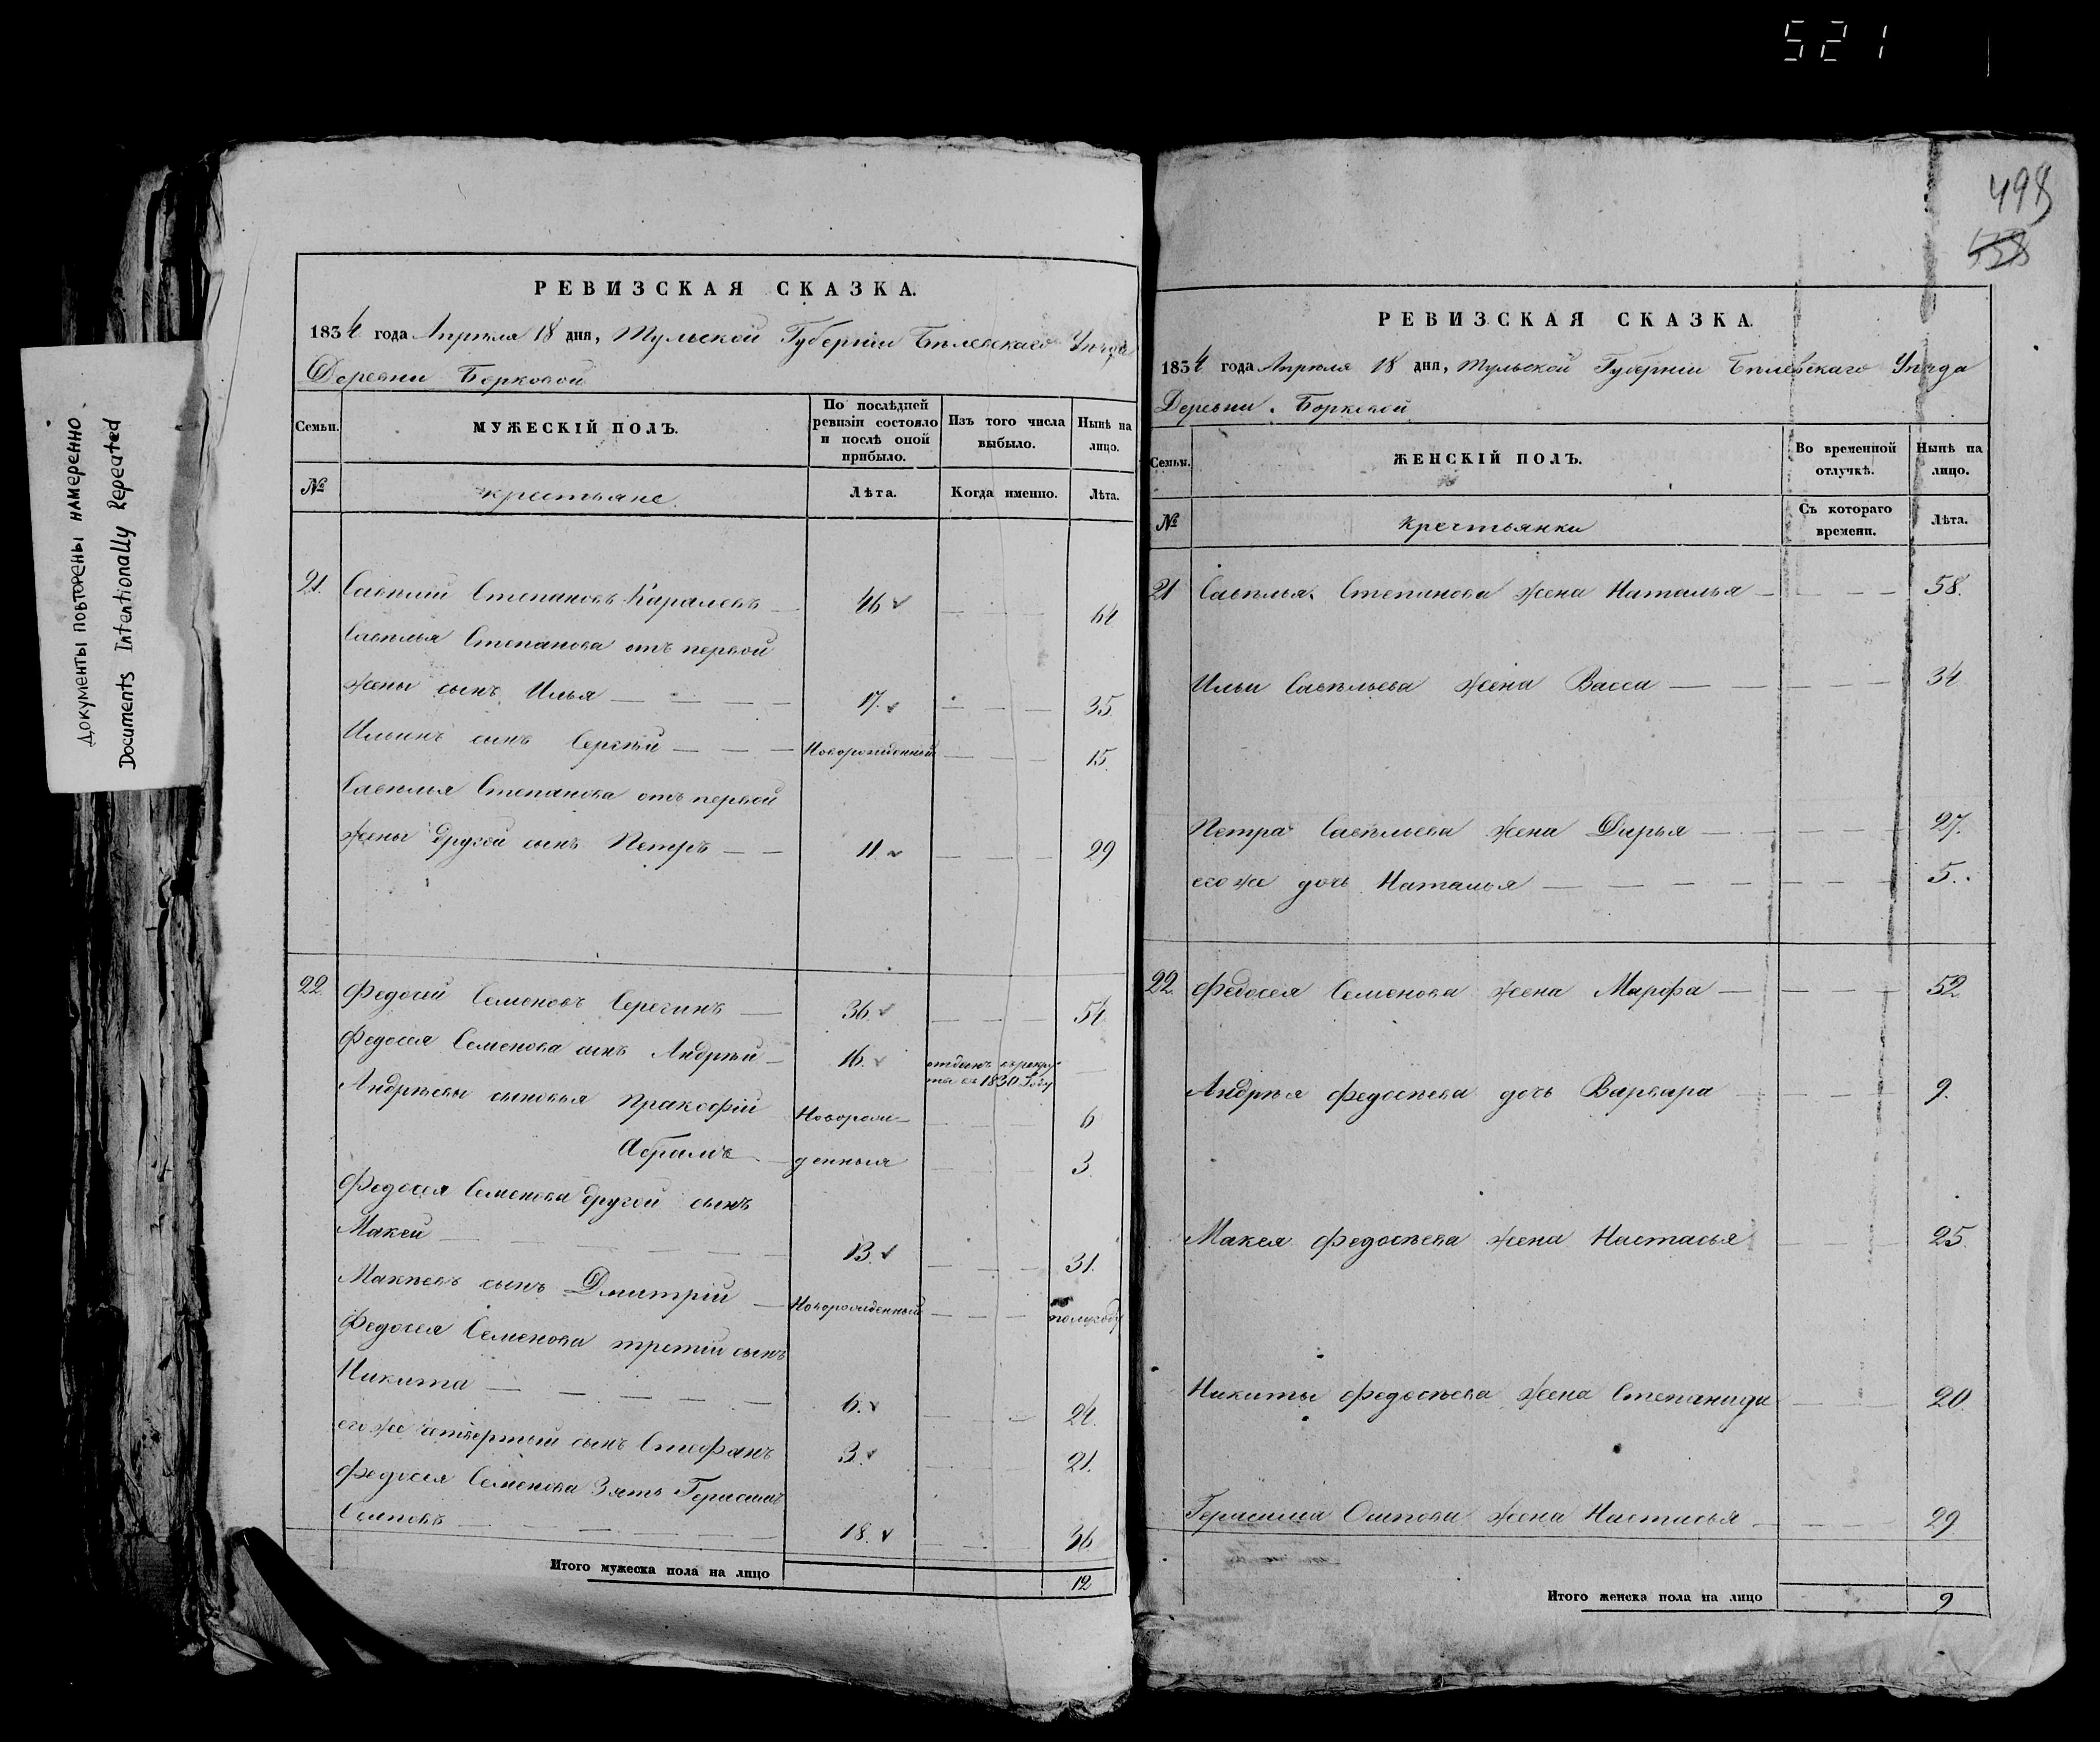 521
498
538
Документы повторены намеренно
Documents Intentionally Repeated
РЕВИЗСКАЯ СКАЗКА.
1834 года Апреля 18 дня, Тульской Губернiи Бѣлевскаго Уѣзда
Деревни Борковой
Семьи.
МУЖЕСКIЙ ПОЛЪ.
По послѣдней ревизiи состояло и послѣ оной прибыло.
Изъ того числа выбыло.
Нынѣ на лицо.
№
крестьяне
Лѣта.
Когда именно.
Лѣта.
21. Савѣлiй Степановъ Каралевъ 46 — — — 64
Савѣлья Степанова отъ первой
жены сынъ Илья — — — — 17. — — — 35.
Ильинъ сынъ Сергѣй — — — Новорожденный — — — 15.
Савѣлья Степанова отъ первой
жены другой сынъ Петръ — — 11. — — — 29
22 Федосей Семеновъ Серегинъ — 36. — — — 54
Федосея Семенова сынъ Андрѣй — 16. отданъ въ рекру-
ты въ 1830 году —
Андрѣевы сыновья Пракофiй Новорож- — — — 6
Абрамъ — денныя — — — 3.
Федосея Семенова другой сынъ
Макей — — — 13. — — — 31.
Макѣевъ сынъ Дмитрiй — Новорожденный — — — полугоду
Федосея Семенова третiй сынъ
Никита — — — — — 6. — — — 24.
его же четвертый сынъ Стефанъ 3. — — — 21.
Федосея Семенова Зять Герасимъ
Осиповъ — — — — 18. — — — 36
Итого мужеска пола на лицо 12
РЕВИЗСКАЯ СКАЗКА.
1834 года Апреля 18 дня, Тульской Губернiи Бѣлевскаго Уѣзда
Деревни Борковой
Семьи.
ЖЕНСКIЙ ПОЛЪ.
Во временной отлучкѣ.
Нынѣ на лицо.
№
крестьянки
Съ котораго времени.
Лѣта.
21 Савѣлья Степанова жена Наталья — — — — 58.
Ильи Савѣльева жена Васса — — — — 34
Петра Савѣльева жена Дарья — — — — 27.
его же дочь Наталья — — — — — — — — 5.
22. Федосея Семенова жена Марфа — — — — 52
Андрѣя Федосѣева дочь Варвара — — — — 9.
Макея Федосѣева жена Настасья — — — 25.
Никиты Федосѣева жена Степанида — — — 20.
Герасима Осипова жена Настасья — — — — 29
Итого женска пола на лицо 9